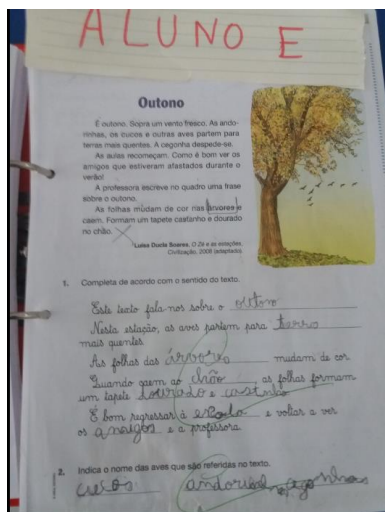 ALUNO E
Outono
É outono. Sopra um vento fresco. As ando-
rinhas, os cucos e outras aves partem para
terras mais quentes. A cegonha despede-se.
As aulas recomeçam. Como é bom ver os
amigos que estiveram afastados durante o
verão!
A professora escreve no quadro uma frase
sobre o outono.
As folhas mudam de cor nas árvores e
caem. Formam um tapete castanho e dourado
no chão.
Luísa Ducla Soares, O Zé e as estações,
Civilização, 2008 (adaptado)
1. Completa de acordo com o sentido do texto.
Este texto fala-nos sobre o outono
Nesta estação, as aves partem para terro
mais quentes.
As folhas das árvores mudam de cor.
Quando caem ao chão as folhas formam
um tapete dourado e castnho
É bom regressar à escolo e voltar a ver
os amigos e a professora.
2. Indica o nome das aves que são referidas no texto.